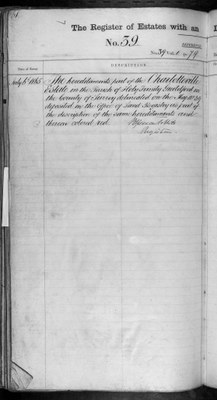 The Register of Estates with an
No. 39
DESCRIPTION.
July 6th 1865 The hereditaments part of the Charlotteville
Estate in the Parish of Holy Trinity Guildford in
the County of Surrey delineated on the Map No. 39
deposited in the Office of Land Registry as part of
the description of the same hereditaments and
thereon colored red.
Registrar